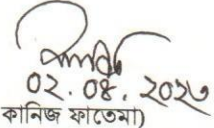 ০২.০৪.২০২৩
কানিজ ফাতেমা)